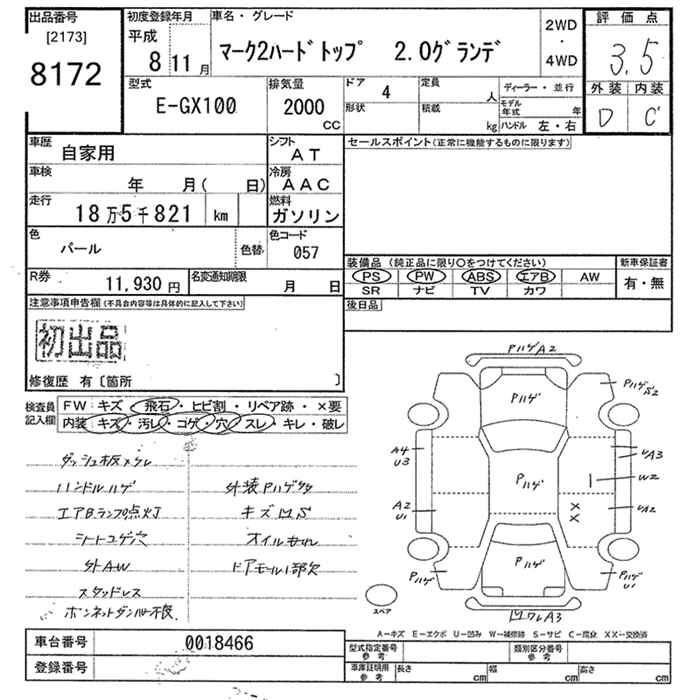 出品番号 初度登録年月 車名・グレード 2WD・4WD 評価点
[2173] 8172
平成 8 11月 マーク2ハードトップ 2.0グランデ 3.5
型式 E-GX100 排気量 2000 CC ドア 4 定員 人 ディーラー・並行 外装 内装
形状 積載 kg モデル年式 年 ハンドル 左・右 D C
車歴 自家用 シフト AT セールスポイント(正常に機能するものに限ります)
車検 年 月( 日) 冷房 AAC
走行 18万5千821 km 燃料 ガソリン
色 パール 色替 色コード 057
装備品(純正品に限り○をつけてください) 新車保証書
PS PW ABS エアB AW 有・無
SR ナビ TV カワ
R券 11,930円 名変通知期限 月 日
後日品
注意事項申告欄(不具合内容等は具体的に記入して下さい)
初出品
修復歴 有〔箇所 〕
検査員記入欄 FW: キズ・飛石・ヒビ割・リペア跡・×要
内装: キズ・汚レ・コゲ・穴・スレ・キレ・破レ
ダッシュ板メクレ
ハンドルハゲ
エアBランプ点灯
シートコゲ穴
外AW
スタッドレス
ボンネットダンパー不良
外装Pハゲ
キズ凹
オイルモレ
ドアモール1部欠
PハゲA2
Pハゲ
Pハゲ
A2
A4
U3
UA3
W2
Pハゲ
A2
U1
XX
UA2
Pハゲ
Pハゲ
Pハゲ
U1
凹ワレA3
スペア
A−キズ E−エクボ U−凹み W−補修跡 S−サビ C−腐食 XX−交換済
車台番号 0018466
登録番号
型式指定番号 参考 類別区分番号 参考
車庫証明用 参考 長さ cm 幅 cm 高さ cm